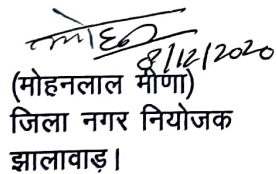 8/12/2020
(मोहनलाल मीणा)
जिला नगर नियोजक
झालावाड़।